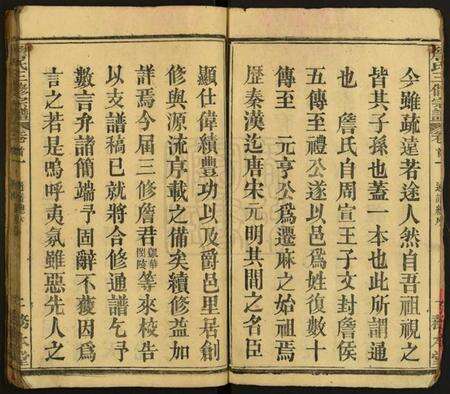 今雖疏遠若途人然自吾祖視之
皆其子孫也蓋一本也此所謂通
也　詹氏自周宣王子文封詹侯
五傳至禮公遂以邑爲姓復數十
傳至　元亨公爲遷麻之始祖焉
歷秦漢迄唐宋元明其間之名臣
顯仕偉績豐功以及爵邑里居創
修與源流序載之備矣續修益加
詳焉今届三修詹君等來棱告
以支譜稿已就將合修通譜乞予
數言弁諸簡端予固辭不獲因爲
言之若是嗚呼夷氛雖惡先人之
詹氏三修宗譜 卷首一